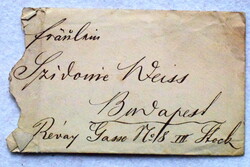 Fräulein
Szidonie Weiss
Budapest
Révay Gasse No 18 III Stock